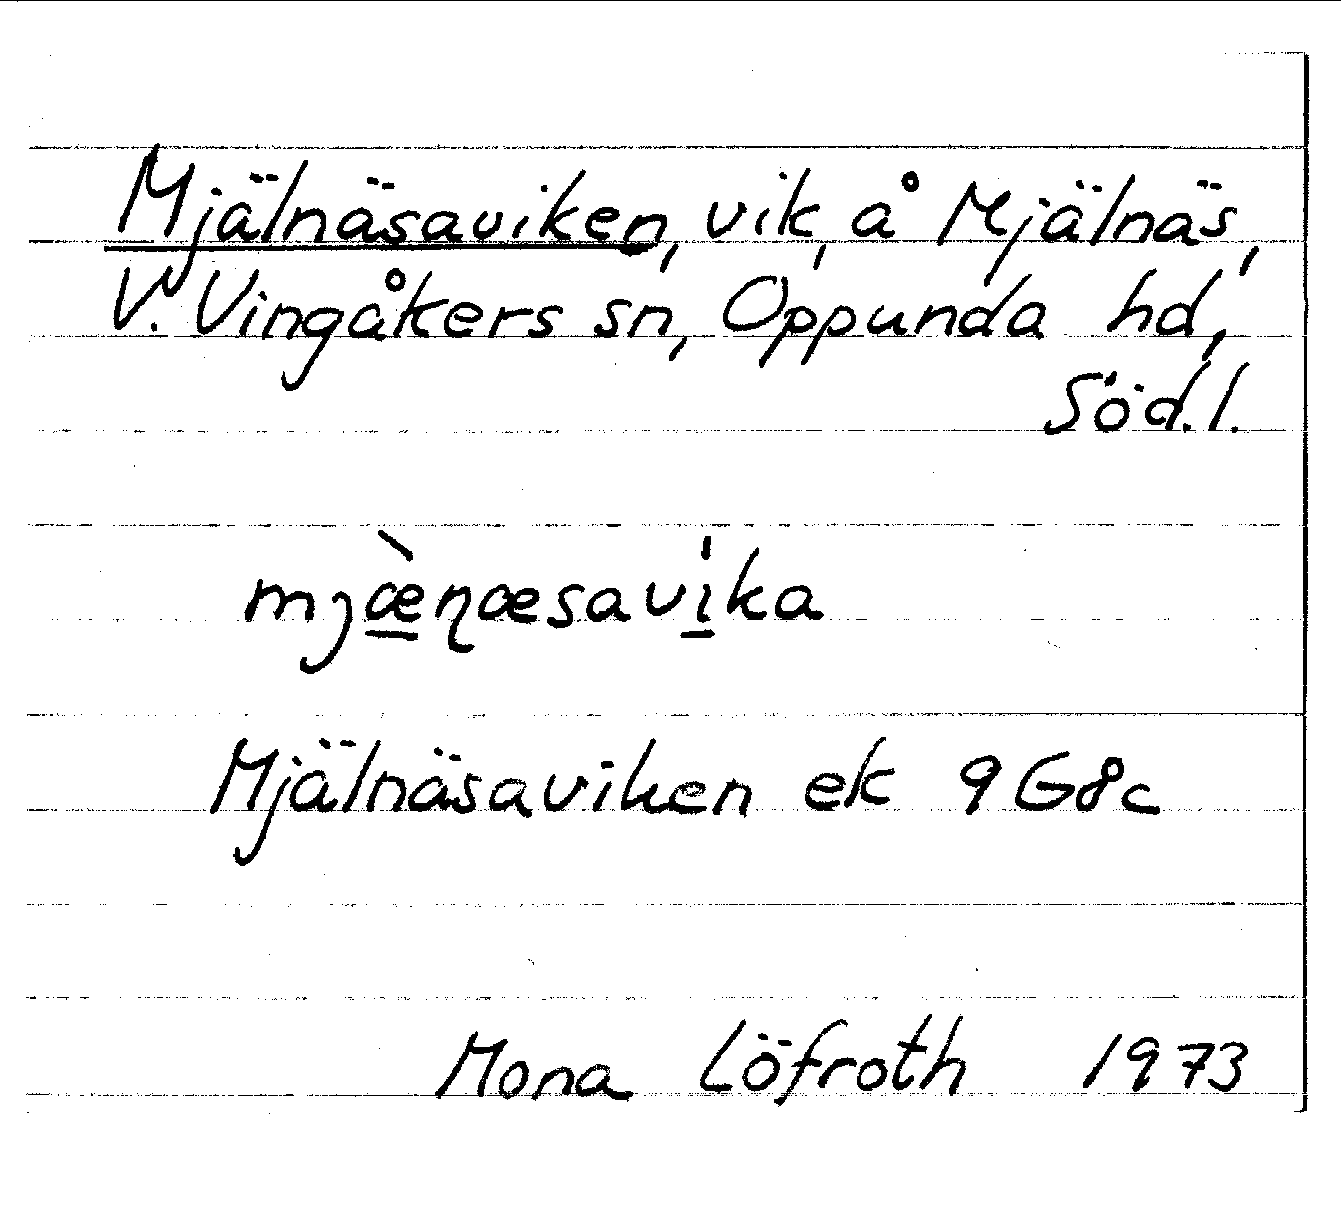 Mjälnäsaviken, vik, å Mjälnäs,
V. Vingåkers sn, Oppunda hd,
Söd.l.
mjæ̱̀ɳæsavi̱̍ka
Mjälnäsaviken ek 9G8c
Mona Löfroth 1973